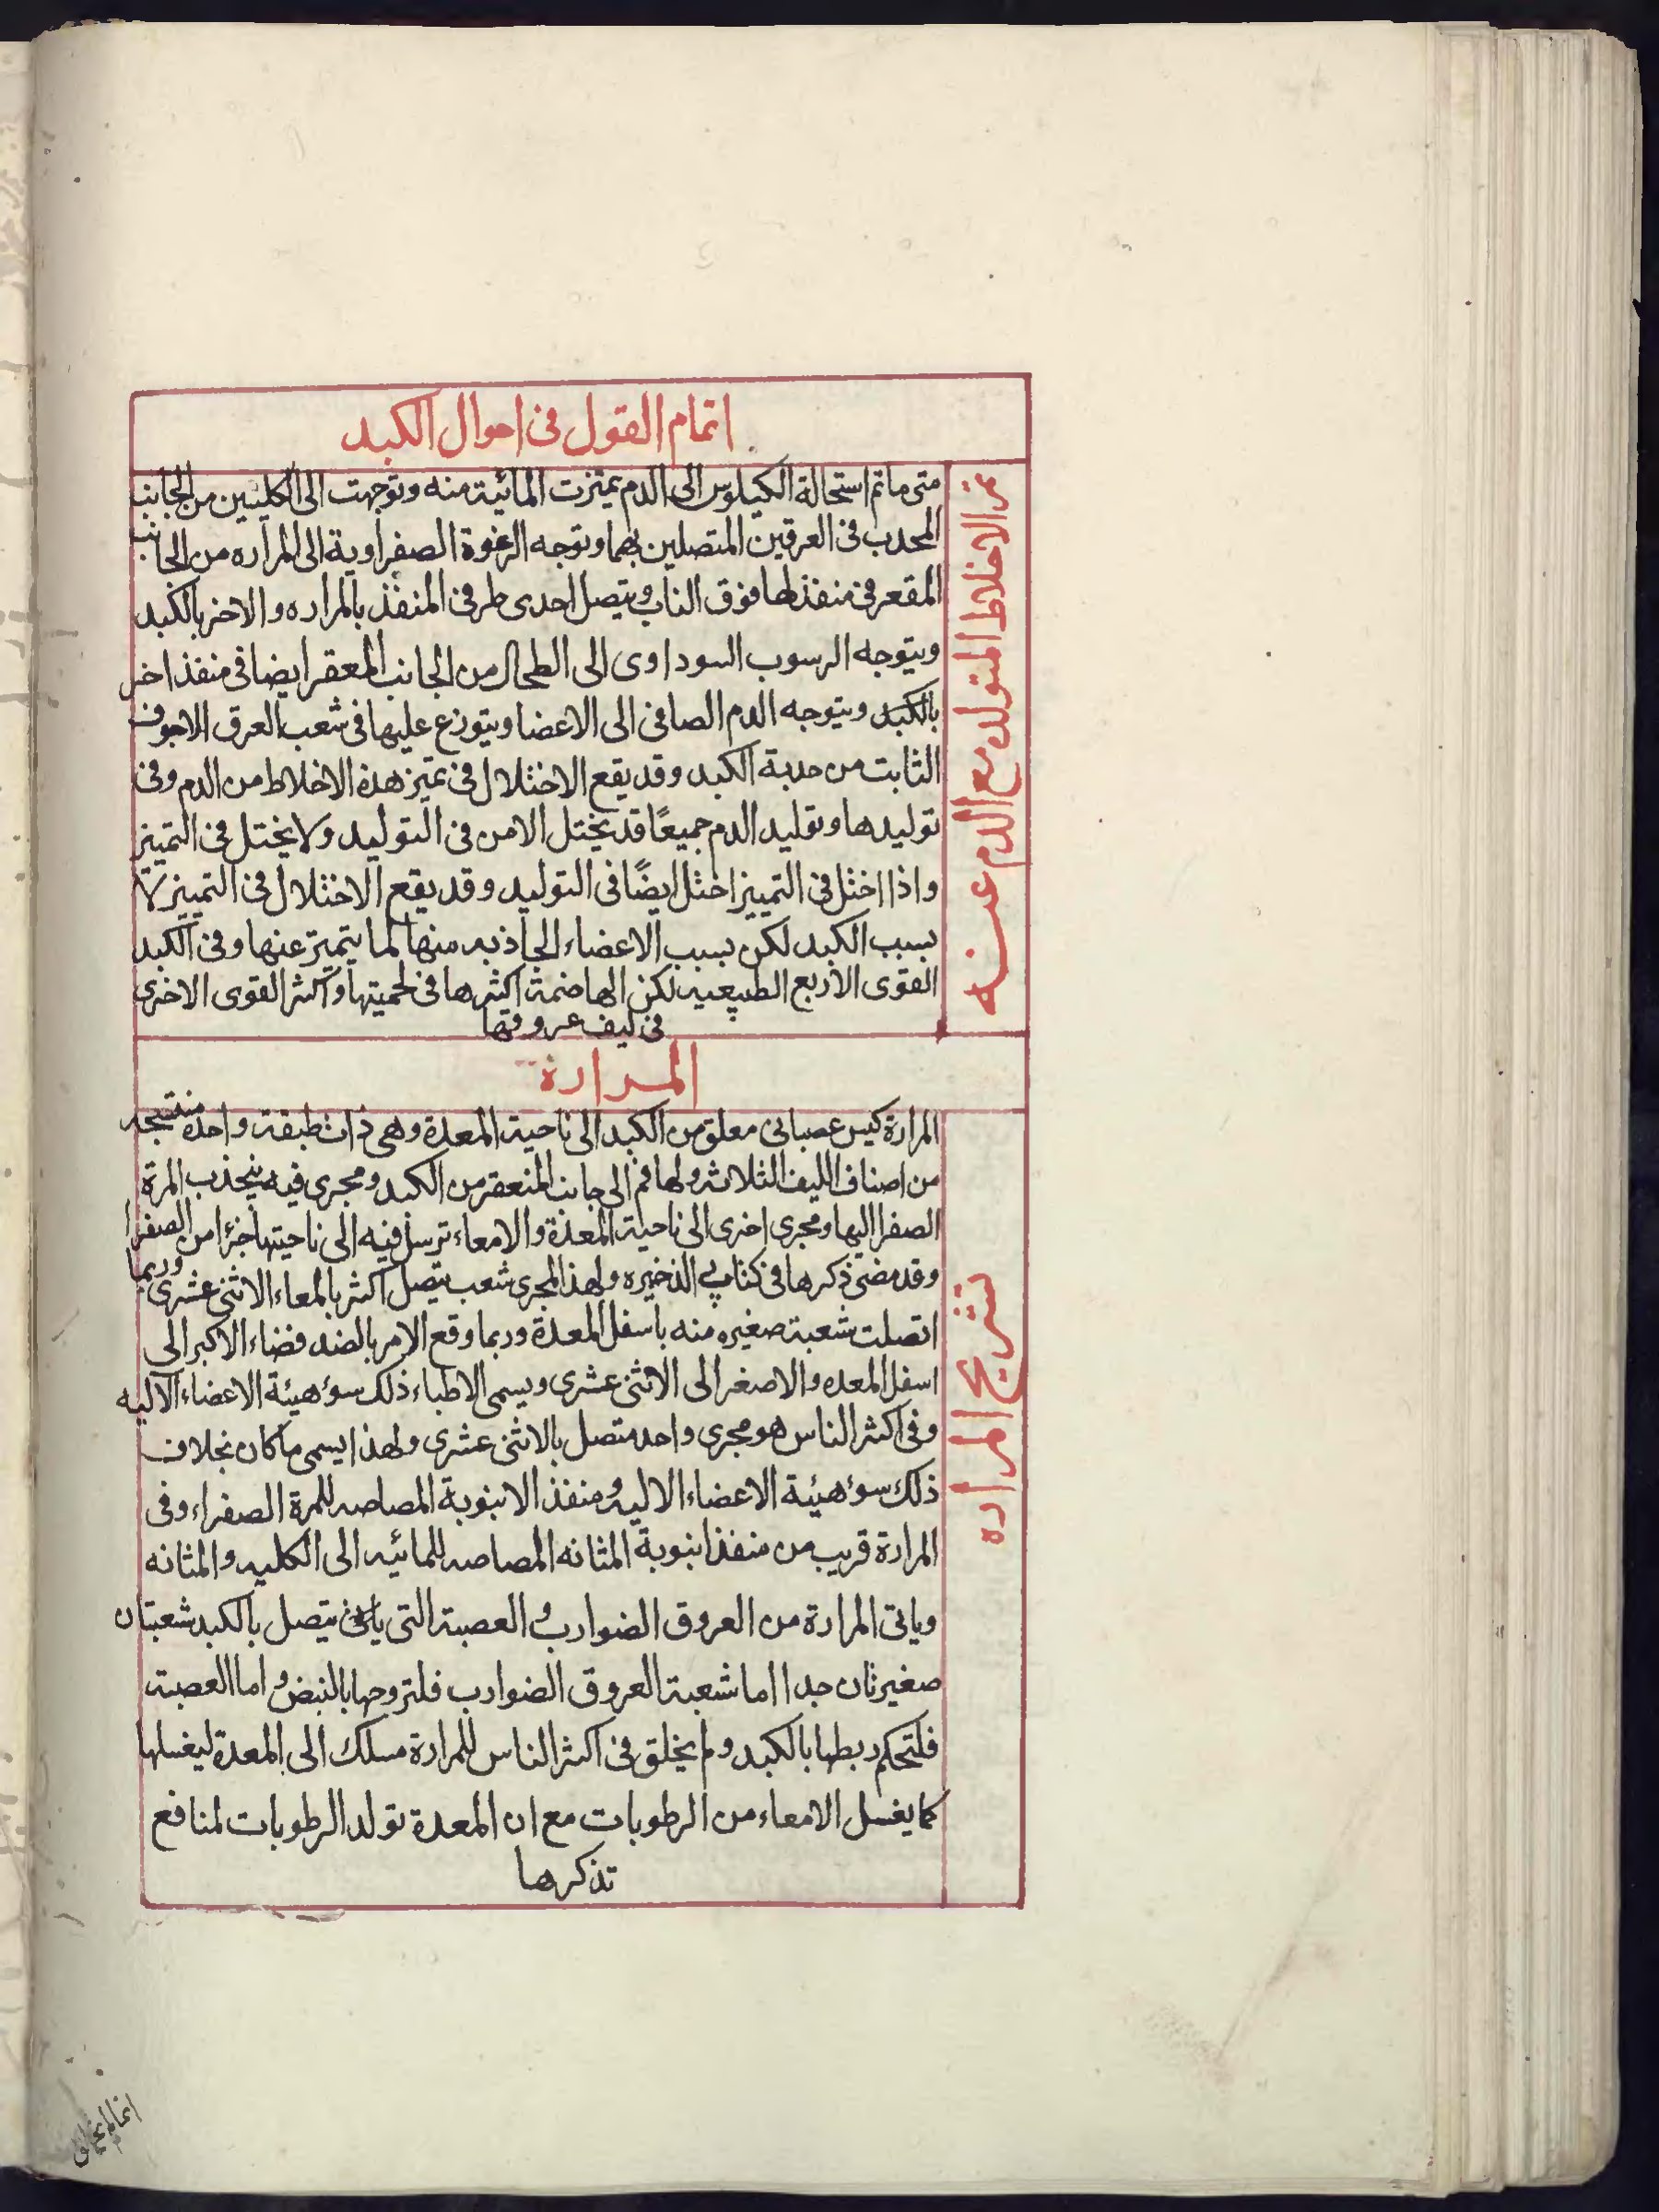 اتمام القول فى احوال الكبد
تميز الاخلاط المتولده مع الدم عنه
متى ما تم استحالة الكيلوس الى الدم تميزت المائية منه وتوجهت الى الكليتين من الجانب
المحدب فى العرقين المتصلين بهما وتوجه الرغوة الصفراوية الى المراره من الجانب
المقعر فى منفذ لها فوق الناب ويتصل احدى طرفى المنفذ بالمراره والاخر بالكبد
ويتوجه الرسوب السوداوى الى الطحال من الجانب المعقر ايضا فى منفذ اخر
بالكبد ويتوجه الدم الصافى الى الاعضا ويتوزع عليها فى شعب العرق الاجوف
الثابت من حدبة الكبد وقد يقع الاختلال فى تميز هذه الاخلاط من الدم وفى
توليدها وتوليد الدم جميعًا قد يختل الامر فى التوليد ولا يختل فى التمييز
واذا اختل فى التمييز اختل ايضًا فى التوليد وقد يقع الاختلال فى التمييز لا
بسبب الكبد لكن بسبب الاعضاء الجاذبه منها لما يتميز عنها وفى الكبد
القوى الاربع الطبيعيه لكن الهاضمة اكثرها فى لحميتها واكثر القوى الاخرى
فى ليف عروقها
المرارة
تشريح المراره
المرارة كيس عصبانى معلق من الكبد الى ناحية المعدة وهى ذات طبقة واحدة منتسجه
من اصناف الليف الثلاثه ولها فم الى جانب المنعقر من الكبد ومجرى فيه ينجذب المرة
الصفرا اليها ومجرى اخرى الى ناحية المعدة والامعاء ترسل فيه الى ناحيتها جزًا من الصفرا
وقد مضى ذكرها فى كتابى الذخيره ولهذا المجرى شعب يتصل اكثر بالمعاء الاثنى عشرى وربما
اتصلت شعبة صغيره منه باسفل المعدة وربما وقع الامر بالضد فضاء الاكبر الى
اسفل المعده والاصغر الى الاثنى عشرى ويسمى الاطباء ذلك سؤ هيئة الاعضاء الآليه
وفى اكثر الناس هو مجرى واحد متصل بالاثنى عشرى ولهذا يسمى ما كان بخلاف
ذلك سؤ هيئة الاعضاء الاليه ومنفذ الانبوبة المصاصه للمرة الصفراء وفى
المرارة قريب من منفذ انبوبة المثانه المصاصه للمائيه الى الكليه والمثانه
وياتى المرارة من العروق الضوارب والعصبة التى يتصل بالكبد شعبتان
صغيرتان جدا اما شعبة العروق الضوارب فلتروحها بالنبض واما العصبة
فلتحكم ربطها بالكبد ولم يخلق فى اكثر الناس للمرارة مسلك الى المعدة ليغسلها
كما يغسل الامعاء من الرطوبات مع ان المعدة تولد الرطوبات لمنافع
تذكرها
انما لم يخلق